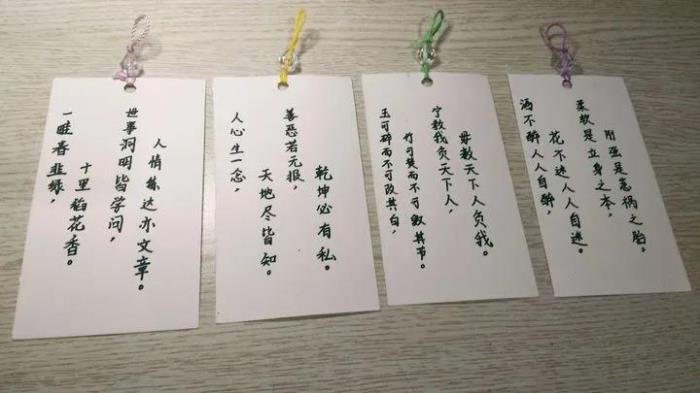 一畦春韭绿，
十里稻花香。
世事洞明皆学问，
人情练达亦文章。
人心生一念，
天地尽皆知。
善恶若无报，
乾坤必有私。
玉可碎而不可改其白，
竹可焚而不可毁其节。
宁教我负天下人，
毋教天下人负我。
酒不醉人人自醉，
花不迷人人自迷。
柔软是立身之本，
刚强是惹祸之胎。